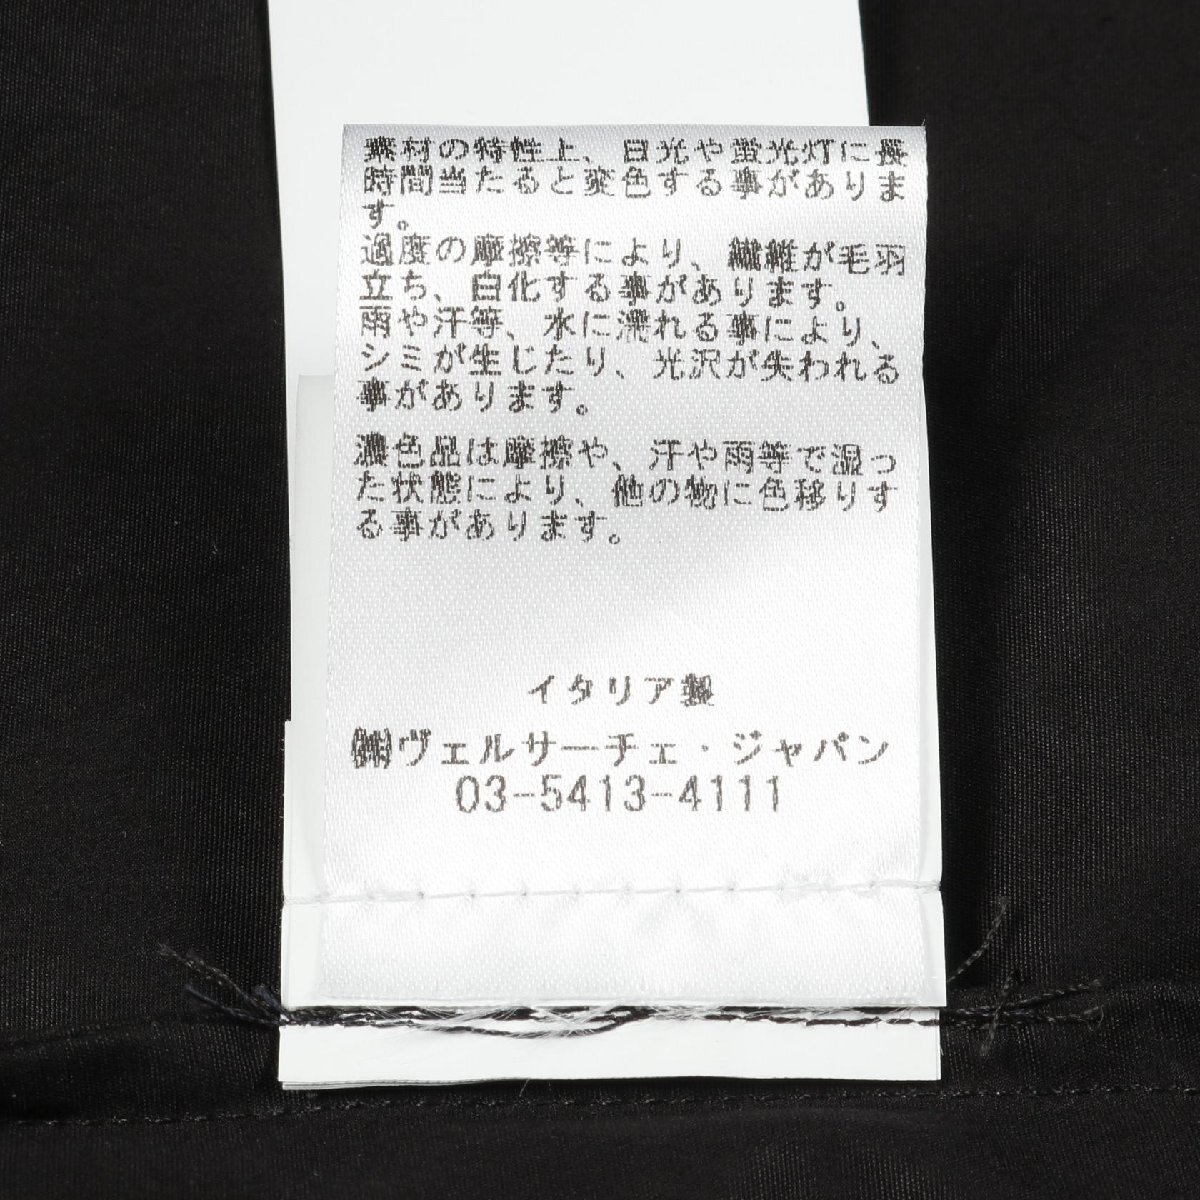 素材の特性上、日光や蛍光灯に長
時間当たると変色する事がありま
す。
過度の摩擦等により、繊維が毛羽
立ち、白化する事があります。
雨や汗等、水に濡れる事により、
シミが生じたり、光沢が失われる
事があります。
濃色品は摩擦や、汗や雨等で湿っ
た状態により、他の物に色移りす
る事があります。
イタリア製
㈱ヴェルサーチェ・ジャパン
03-5413-4111